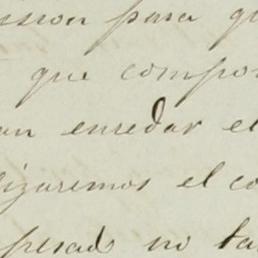 ssion para qu
que compon
an enredar el
lizaremos el co
pesad no ta